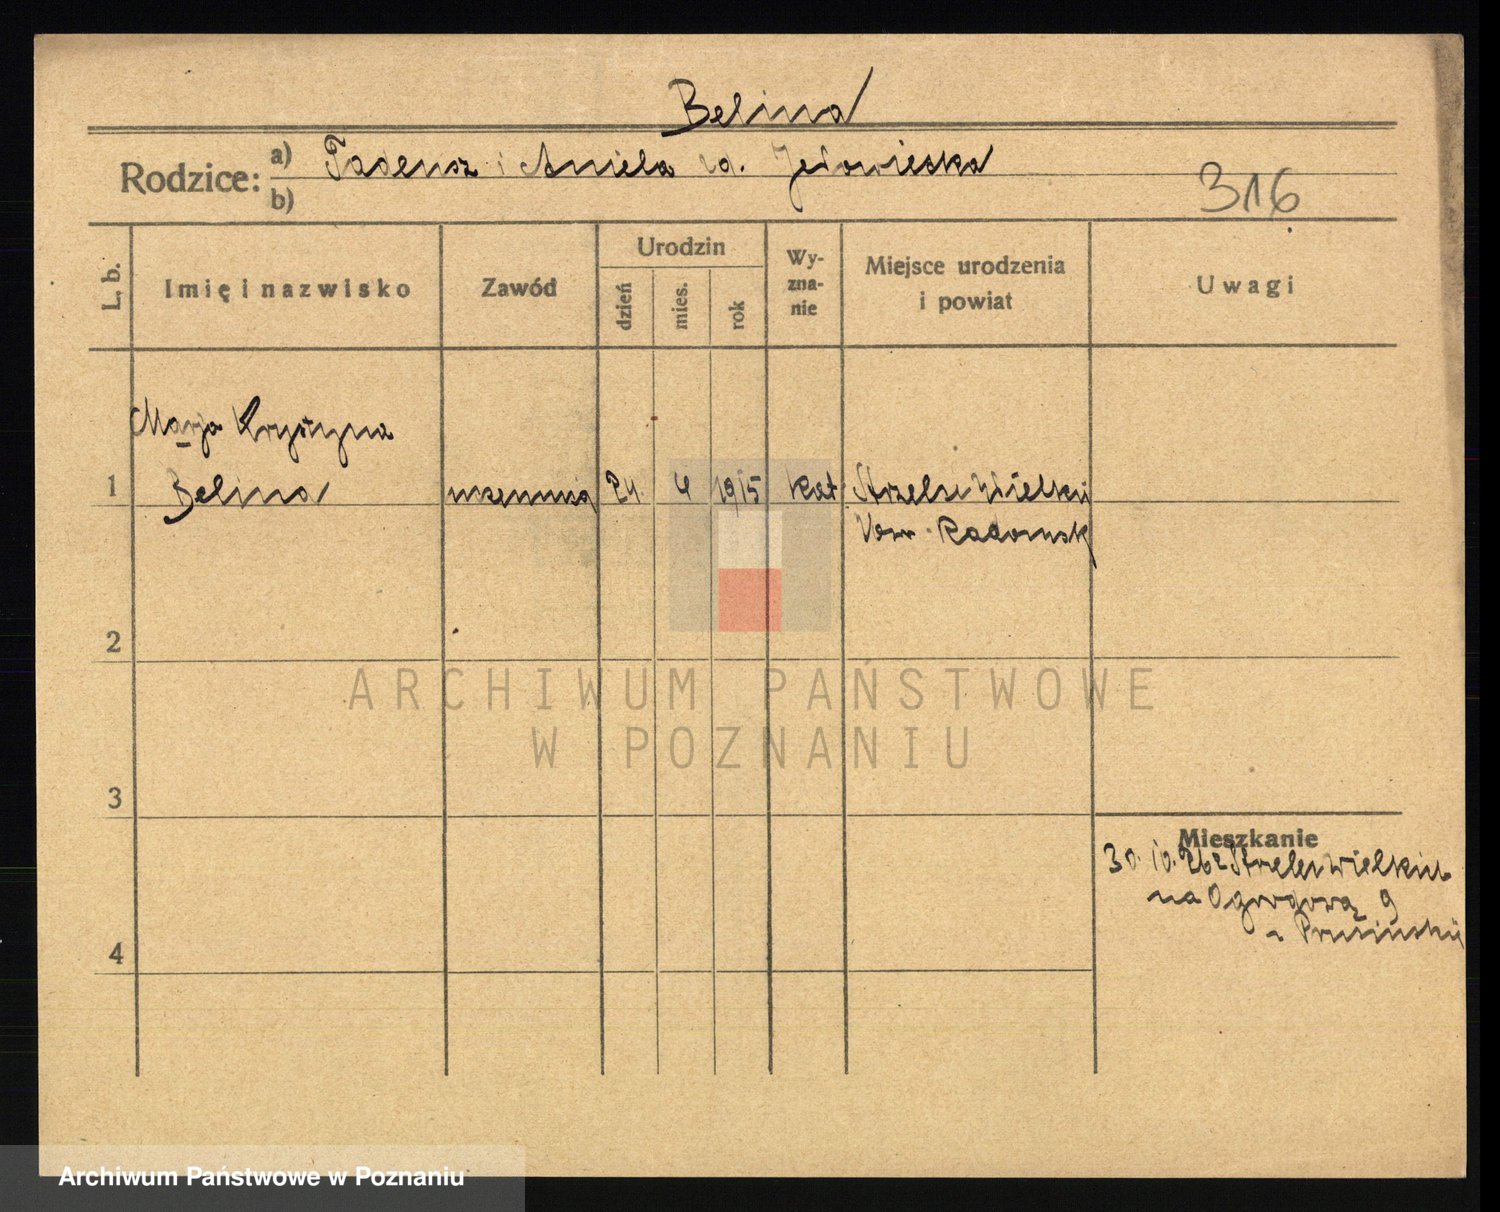 Belina
Rodzice: a) Tadeusz i Aniela zd.
b)
316
L. b.
Imię i nazwisko
Zawód
Urodzin
dzień
mies.
rok
Wy-
zna-
nie
Miejsce urodzenia
i powiat
Uwagi
Marja Krystyna
1 Belina uczennica 24 4 1915 kat Strzelce Wielkie
Radomsk
2
3
4
Mieszkanie
30. 10. 26 z Strzelec Wielkich
na Ogrodową 9
ARCHIWUM PAŃSTWOWE
W POZNANIU
Archiwum Państwowe w Poznaniu